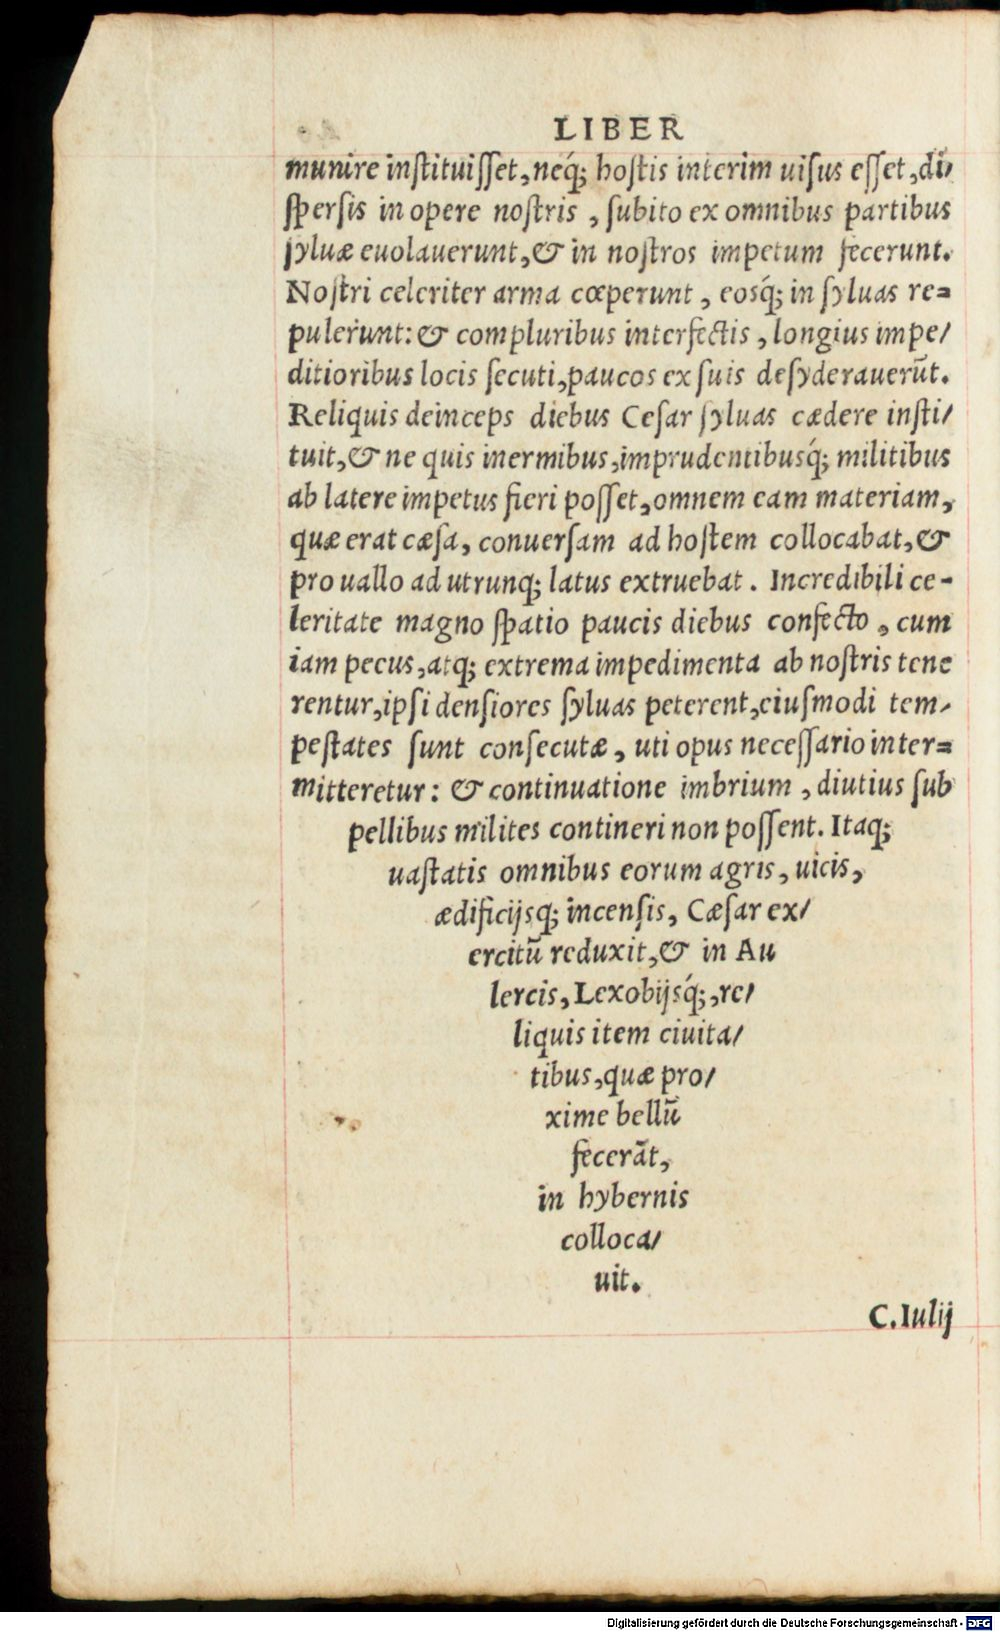 LIBER
munire inſtituiſſet, neq́; hoſtis interim uiſus eſſet, di/
ſperſis in opere noſtris, ſubito ex omnibus partibus
ſyluæ euolauerunt, & in noſtros impetum fecerunt.
Noſtri celeriter arma cœperunt, eosq́; in ſyluas re=
pulerunt: & compluribus interfectis, longius impe/
ditioribus locis ſecuti, paucos ex ſuis deſyderauerūt.
Reliquis deinceps diebus Ceſar ſyluas cædere inſti/
tuit, & ne quis inermibus, imprudentibusq́; militibus
ab latere impetus fieri poſſet, omnem eam materiam,
quæ erat cæſa, conuerſam ad hoſtem collocabat, &
pro uallo ad utrunq; latus extruebat. Incredibili ce-
leritate magno ſpatio paucis diebus confecto, cum
iam pecus, atq; extrema impedimenta ab noſtris tene
rentur, ipſi denſiores ſyluas peterent, eiuſmodi tem/
peſtates ſunt conſecutæ, uti opus neceſſario inter=
mitteretur: & continuatione imbrium, diutius ſub
pellibus milites contineri non poſſent. Itaq;
uaſtatis omnibus eorum agris, uicis,
ædificijsq; incenſis, Cæſar ex/
ercitū reduxit, & in Au
lercis, Lexobijsq́;, re/
liquis item ciuita/
tibus, quæ pro/
xime bellū
fecerāt,
in hybernis
colloca/
uit.
C. Iulij
Digitalisierung gefördert durch die Deutsche Forschungsgemeinschaft - DFG